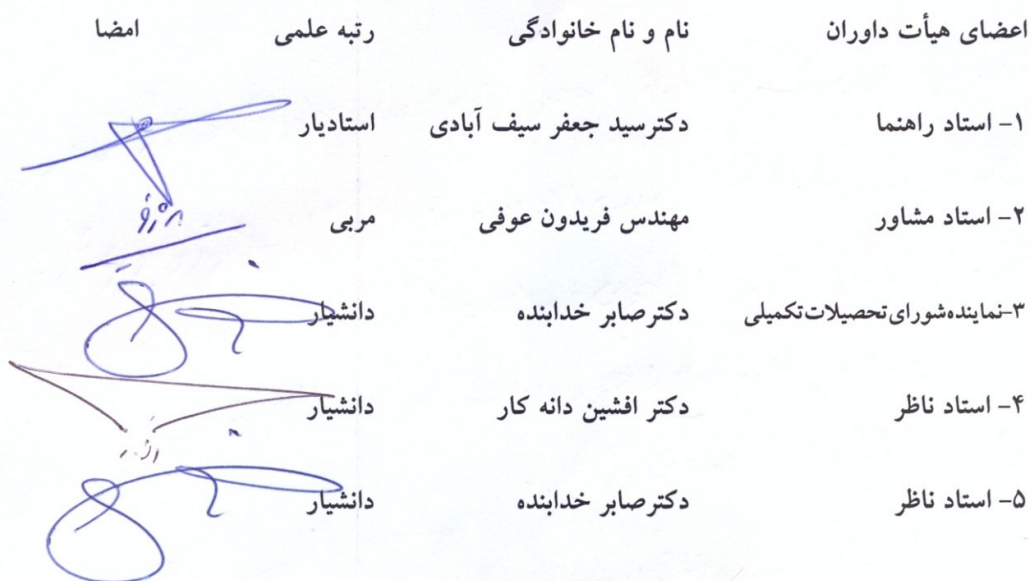 اعضای هیأت داوران نام و نام خانوادگی رتبه علمی امضا
۱- استاد راهنما دکترسید جعفر سیف آبادی استادیار
۲- استاد مشاور مهندس فریدون عوفی مربی
۳-نماینده‌شورای‌تحصیلات‌تکمیلی دکترصابر خدابنده دانشیار
۴- استاد ناظر دکتر افشین دانه کار دانشیار
۵- استاد ناظر دکترصابر خدابنده دانشیار